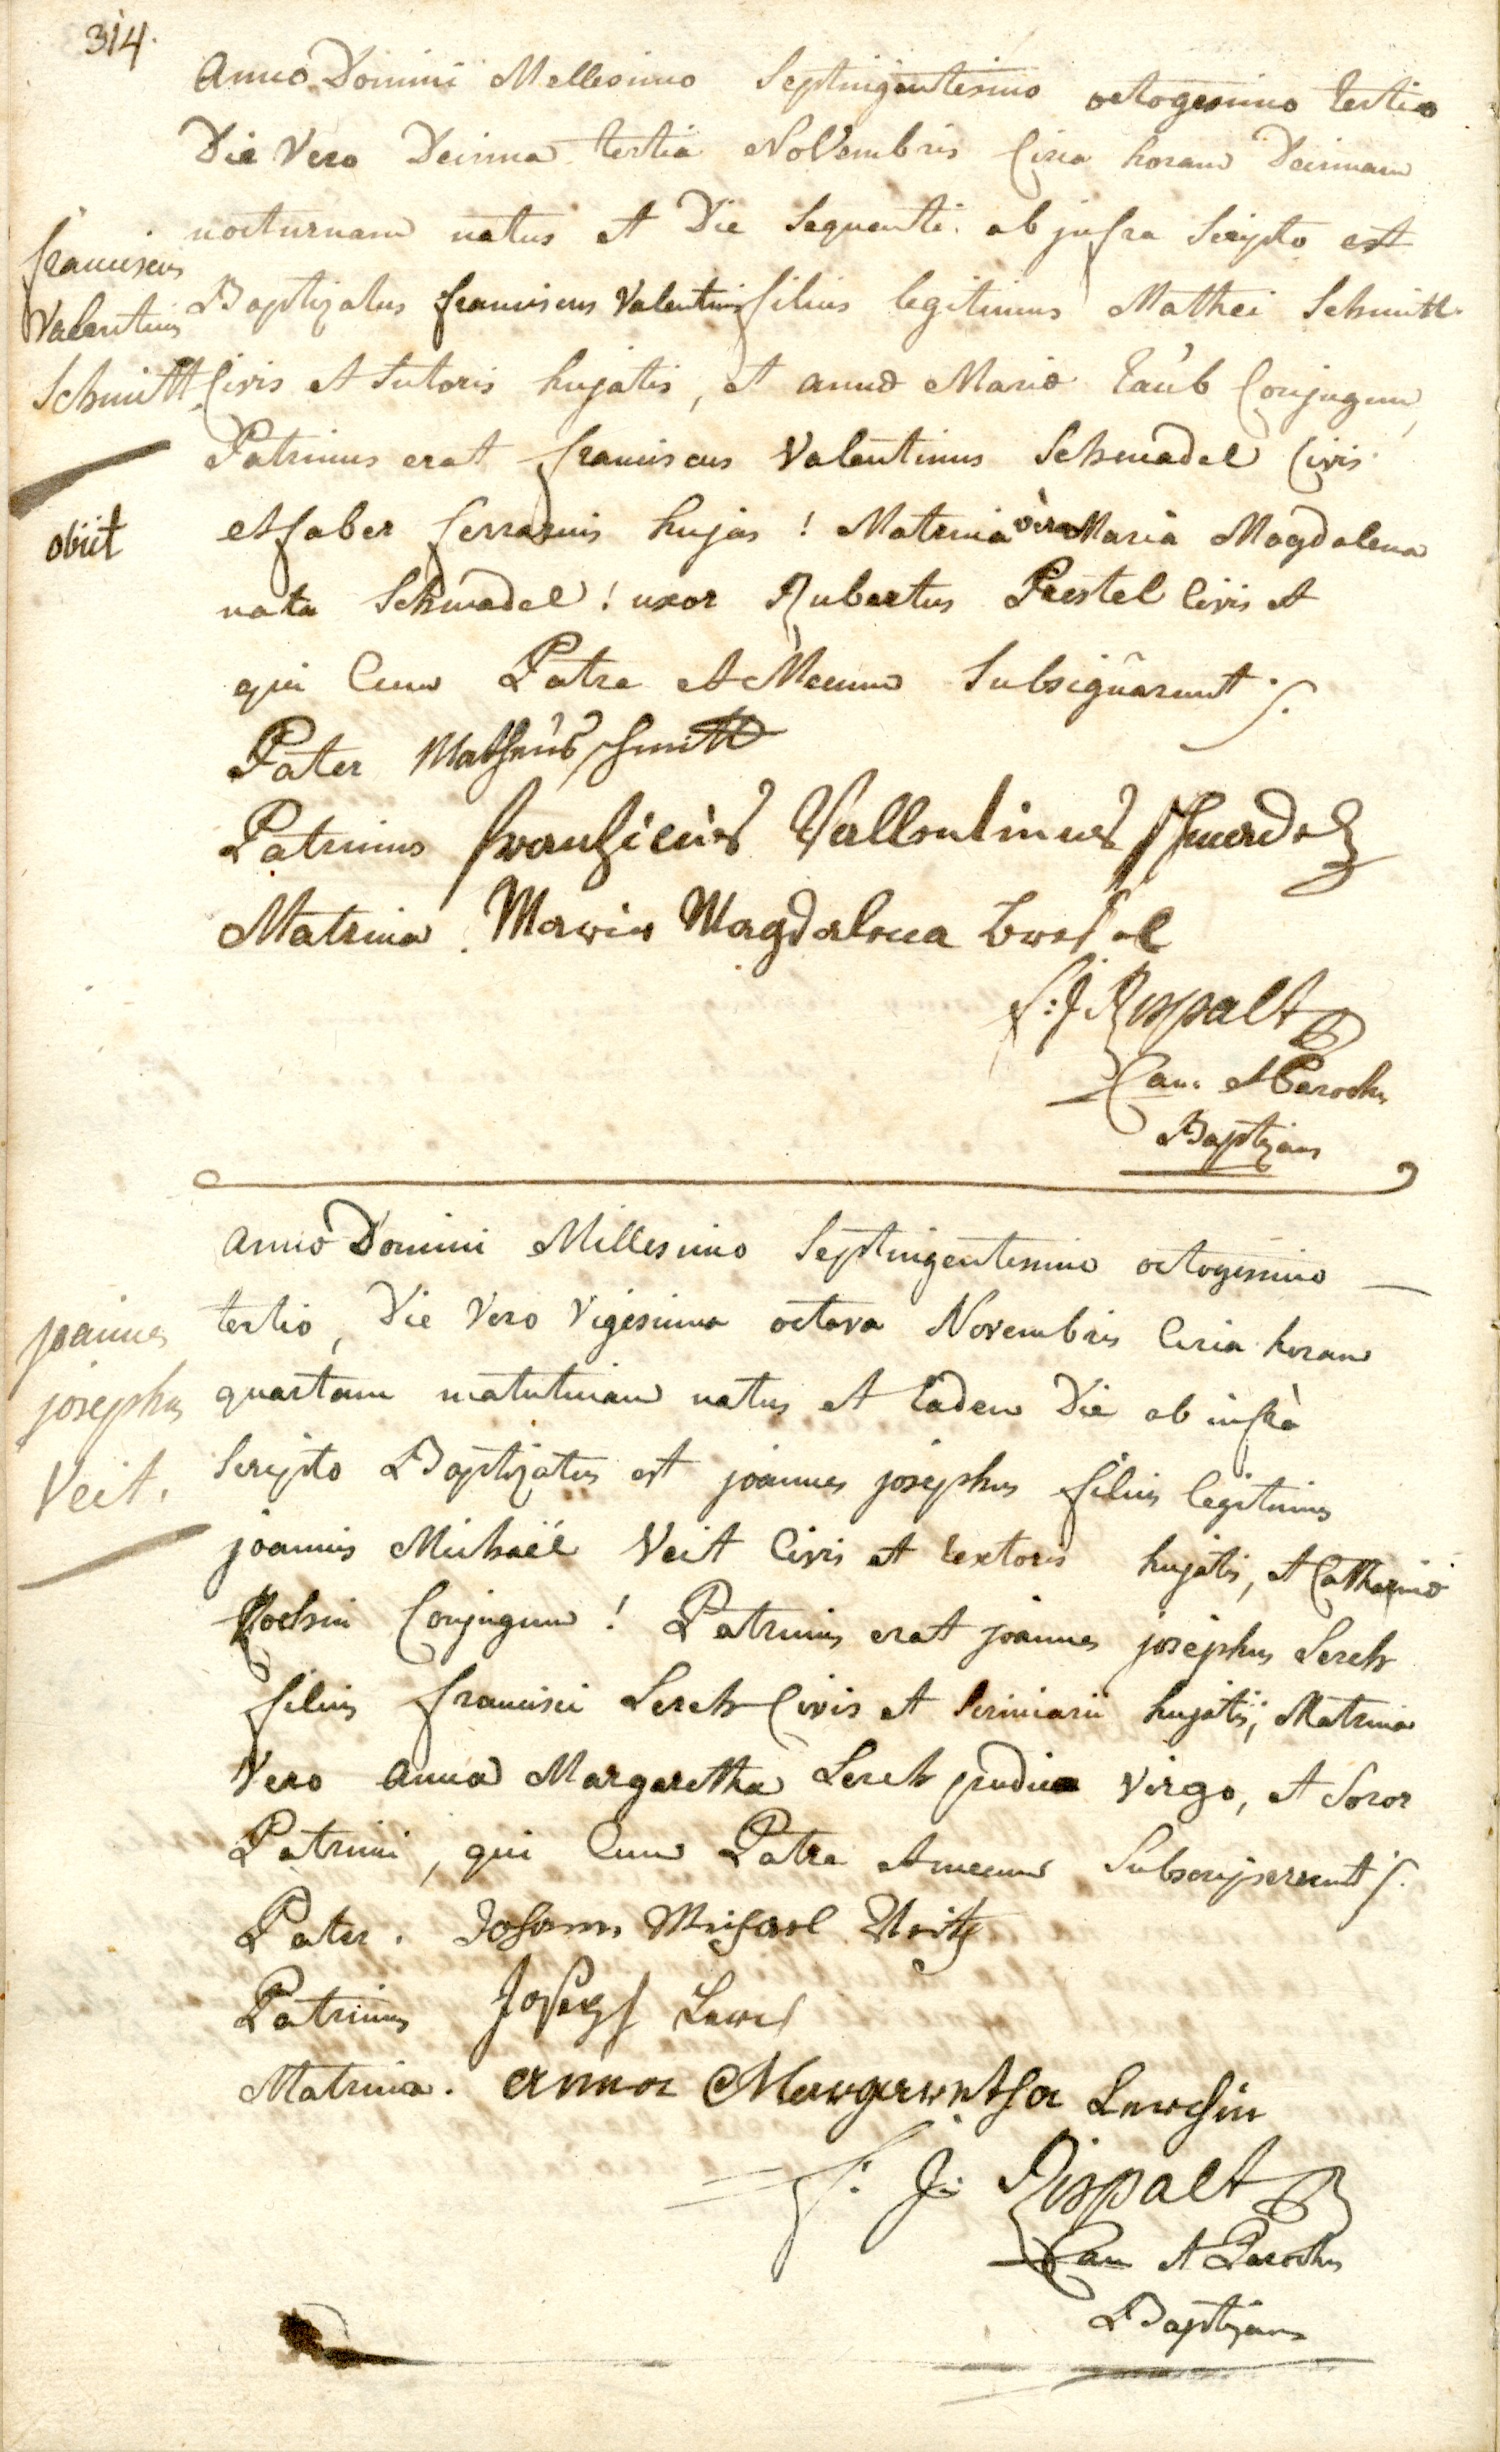 314.
Anno Domini Mellesimo Septingentesimo octogesimo tertio
Die Vero Decima tertia NoVembris Circa horam Decimam
nocturnam natus et Die Sequenti ab jnfra Scripto est
Baptizatus franciscus Valentinus filius legitimus Mathei Schmitt
Civis et Sutoris hujatis, et annæ Mariæ Taub Conjugum,
Patrinus erat franciscus Valentinus Schmadel Civis
et faber ferrarius hujas ! Matrina vero Maria Magdalena
nata Schmadel ! uxor Rubertus Prestel Civis et
qui Cum Patre et Mecum Subsignarunt
franciscus
Valentinus
Schmitt
obiit
Pater Matheus Schmitt
Patrinus franzicus Vallentinus Schmadel
Matrina Maria Magdalena
f: J Rispalt
Can. et Parochus
Baptizans
Anno Domini Millesimo Septingentesimo octogesimo
tertio, Die Vero Vigesima octava Novembris Circa horam
quartam matutinam natus et Eadem Die ab infrà
Scripto Baptizatus est joannes josephus filius legitimus
joannis Michaël Veit Civis et textoris hujatis, et Catharinæ
Conjugum ! Patrinus erat joannes josephus Lerch
filius francisci Lerch Civis et Scriniarii hujatis; Matrina
Vero anna Margaretha Lerch pudica Virgo, et Soror
Patrini, qui Cum Patre et mecum Subscripserunt
joannes
josephus
Veit.
Pater. Johann Michael Veit
Patrinus Joseph Lerch
Matrina. anna Margaretha Lerchin
f: J: Rispalt
Can et Parochus
Baptizans